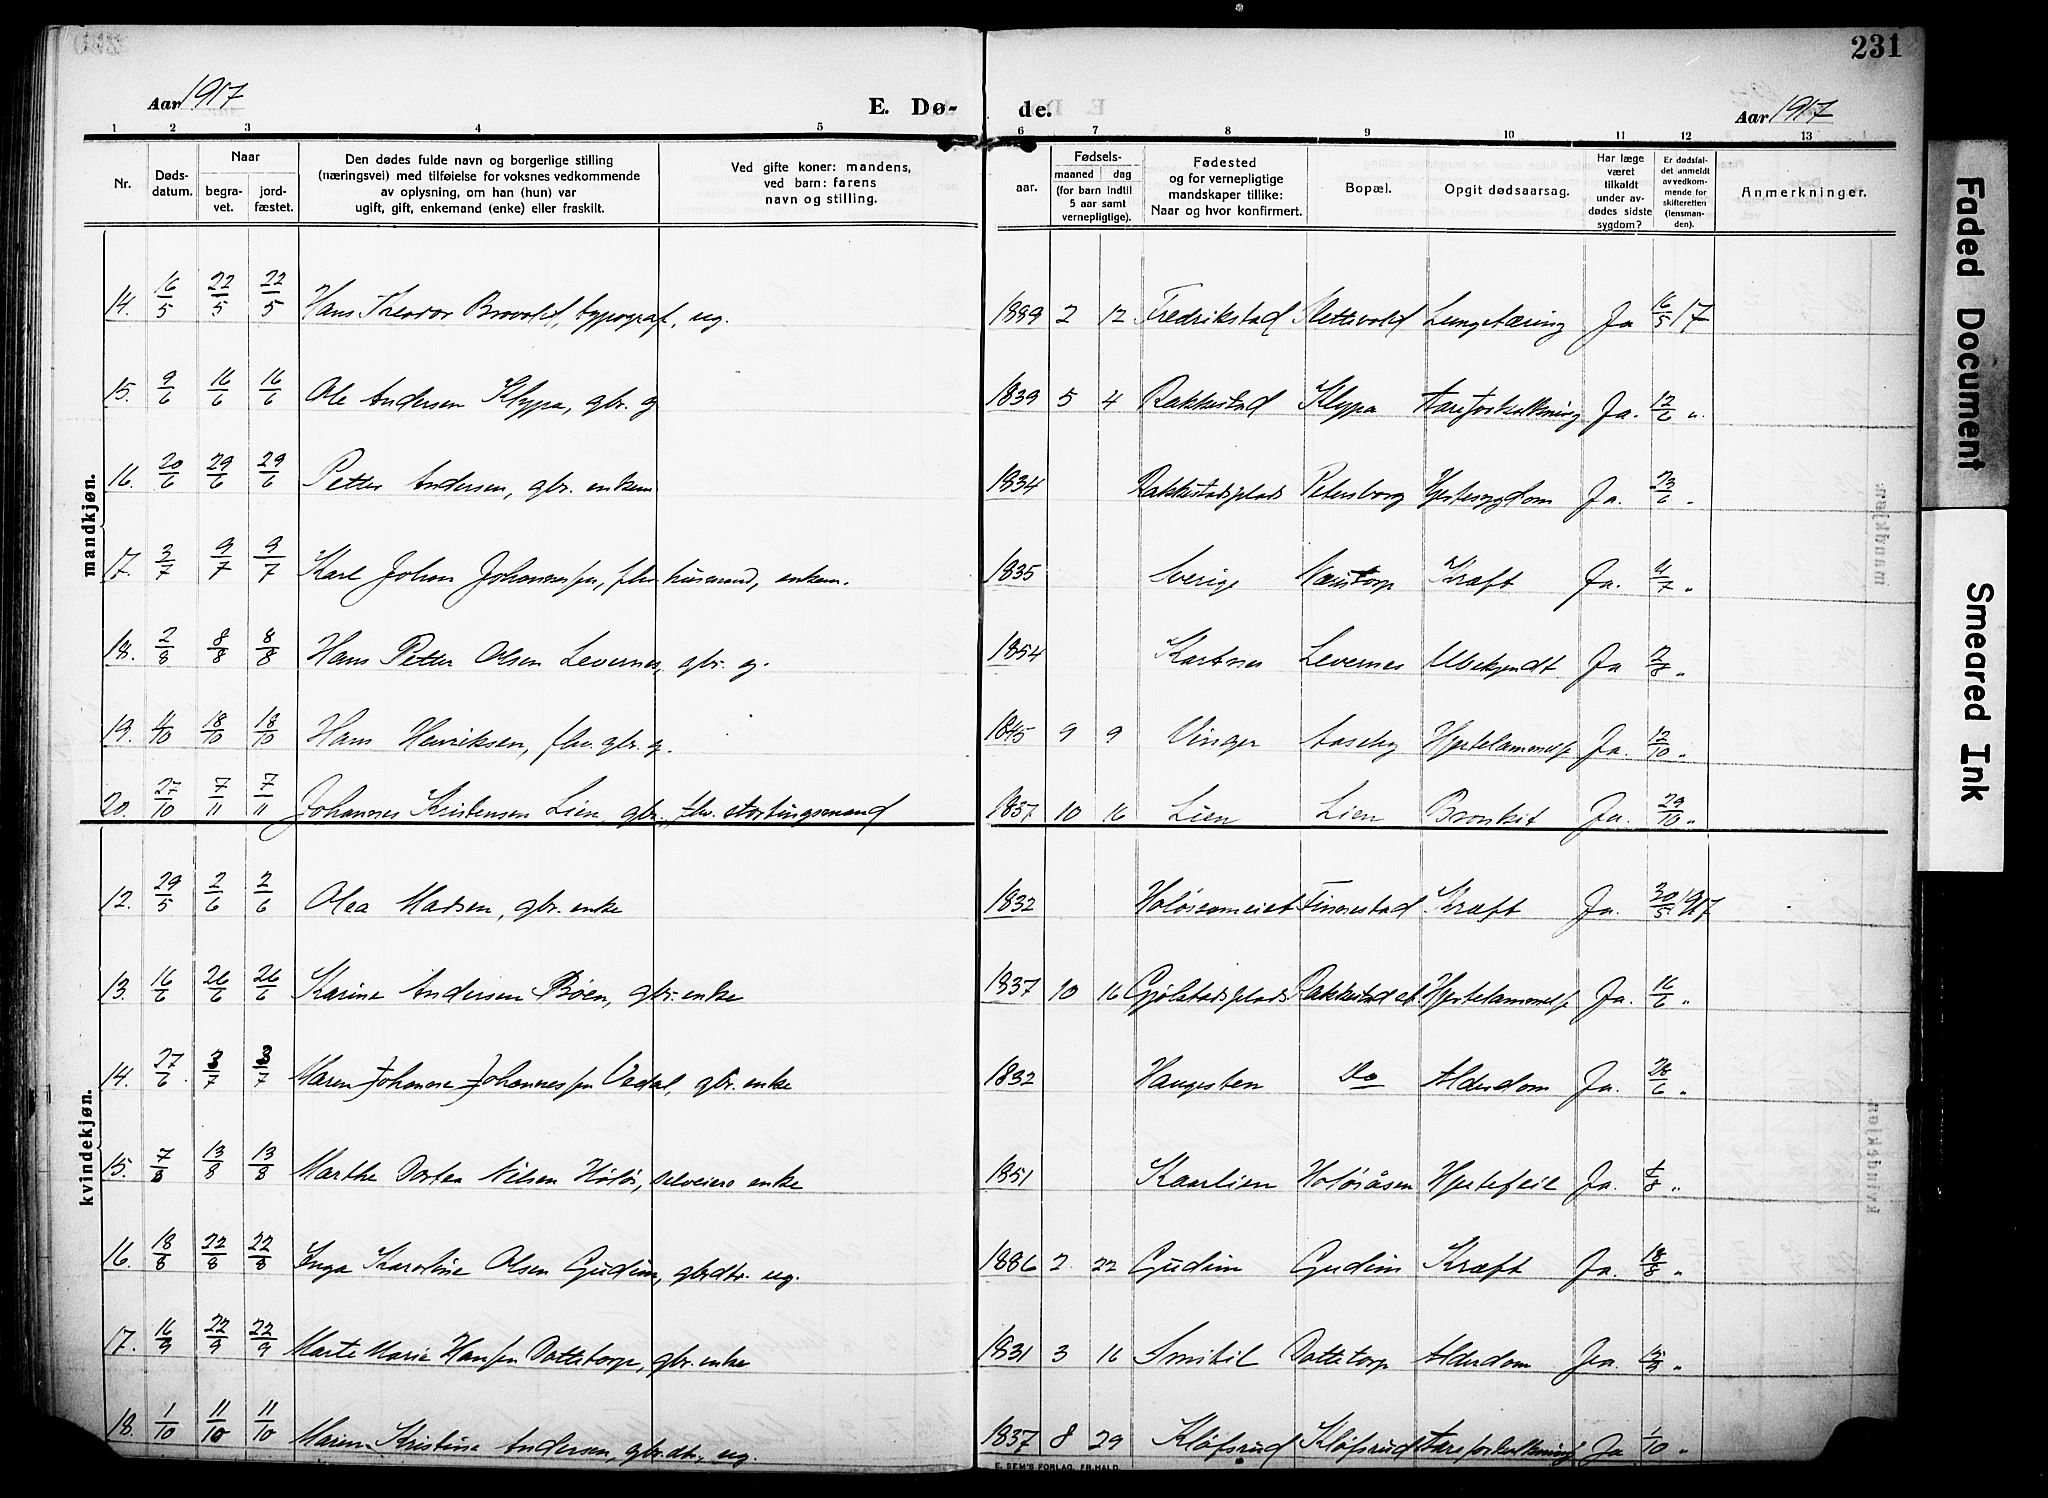 231
Aar 1917 E. Dø- de. Aar 1917
1 2 3 4 5 6 7 8 9 10 11 12 13
Nr. Døds-datum. Naar begra-vet. jord-fæstet. Den dødes fulde navn og borgerlige stilling (næringsvei) med tilføielse for voksnes vedkommende av oplysning, om han (hun) var ugift, gift, enkemand (enke) eller fraskilt. Ved gifte koner: mandens, ved barn: farens navn og stilling. Fødsels- aar. maaned dag (for barn indtil 5 aar samt vernepligtige). Fødested og for vernepligtige mandskaper tillike: Naar og hvor konfirmert. Bopæl. Opgit dødsaarsag. Har læge været tilkaldt under av-dødes sidste sygdom? Er dødsfal-det anmeldt av vedkom-mende for skifteretten (lensman-den). Anmerkninger.
mandkjøn.
14. 16/5 22/5 22/5 Hans Theodor Brovold, typograf, ug. 1889 2 12 Fredrikstad Slettevold Lungetæring Ja 16/5 17
15. 9/6 16/6 16/6 Ole Andersen Klypa, gbr. g 1839 5 4 Rakkestad Klypa Aareforkalkning Ja. 12/6 "
16. 20/6 29/6 29/6 Petter Andersen, gbr. enkem 1834 Rakkestadsplads Petersborg Hjertesygdom Ja. 23/6 "
17. 3/7 9/7 9/7 Karl Johan Johannessen, fhv husmand, enkem. 1835 Sverige Kræft Ja. 4/7 "
18. 2/8 8/8 8/8 Hans Petter Olsen Levernes, gbr. g. 1854 Kartnes Levernes Ubekjendt Ja 2/8 "
19. 11/10 18/10 18/10 Hans Henriksen, fhv. gbr. g. 1845 9 9 Vinger Aaseby Hjertelammelse Ja. 12/10 "
20. 27/10 7/11 7/11 Johannes Kristensen Lien, gbr., fhv. stortingsmand 1837 10 16 Lien Lien Bronkit Ja. 29/10 "
kvindekjøn.
12. 29/5 2/6 2/6 Olea Madsen, gbr. enke 1832 Holøseameiet Finnestad Kræft Ja. 30/5 1917
13. 16/6 26/6 26/6 Karine Andersen Bøen, gbr. enke 1837 10 16 Gjølstadsplads Rakkestad st Hjertelammelse Ja. 16/6 "
14. 27/6 Maren Johanne Johannessen Vedal, gbr. enke 1832 Haugesten Do Alderdom Ja. 28/6 "
15. 7/8 13/8 13/8 Marthe Dortea Nilsen Høløs, selveiers enke 1851 Kaarlien Holøsåsen Hjertefeil Ja. /8 "
16. 18/8 22/8 22/8 Inga Karoline Olsen Gudim, gbrdtr. ug. 1886 2 22 Gudim Gudim Kræft Ja. 18/8 "
17. 16/9 22/9 22/9 Marte Marie Hansen Dottetorp, gbr. enke 1831 3 16 Smikil Dottetorp Alderdom Ja. "
18. 1/10 11/10 11/10 Maren Kristine Andersen, gbr. dtr., ug. 1837 8 29 Kløfsrud Kløfsrud Aareforkalkning Ja 1/10 "
E. SEM'S FORLAG, FR.HALD.
Faded Document
Smeared Ink